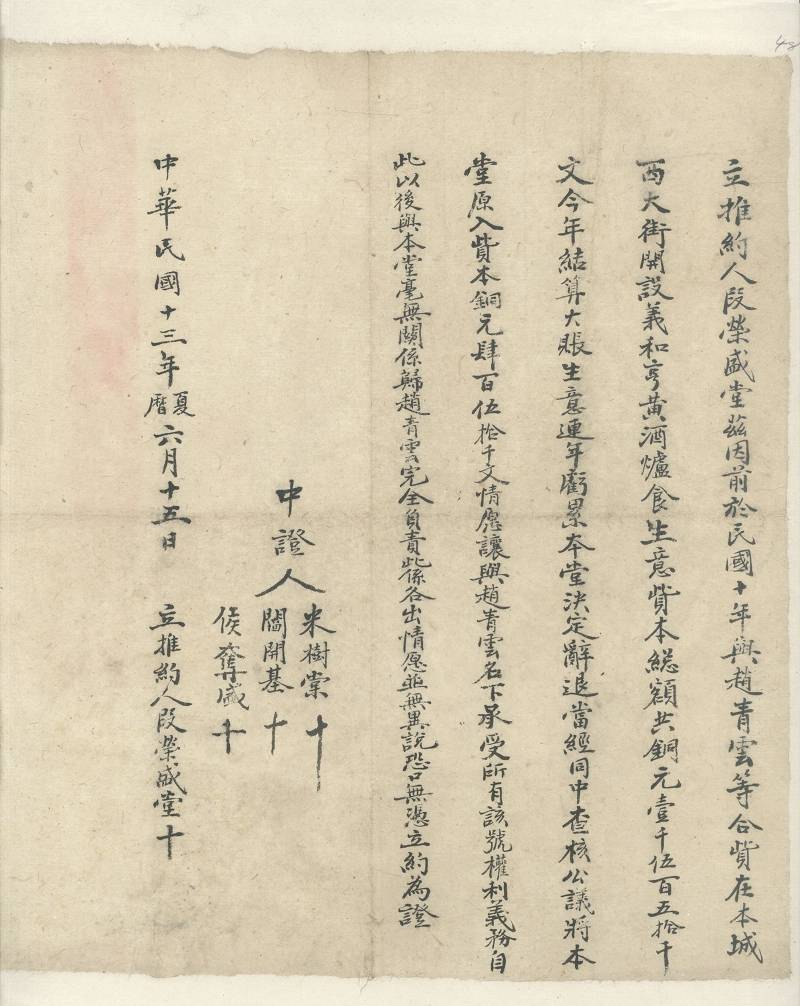 立推約人段榮盛堂茲因前於民國十年與趙青雲等合貲在本城
西大街開設義和亨黄酒爐食生意貲本總額共銅元壹千伍百五拾千
文今年結算大賬生意連年虧累本堂決定辭退當經同中查核公議將本
堂原入貲本銅元肆百伍拾千文情愿讓與趙青雲名下承受所有該號權利義務自
此以後與本堂毫無關係歸趙青雲完全負責此係各出情愿並無異說恐口無憑立約為證
中證人
米樹棠 十
閻開基 十
侯奪盛 十
中華民國十三年夏曆六月十五日 立推約人段榮盛堂十
48